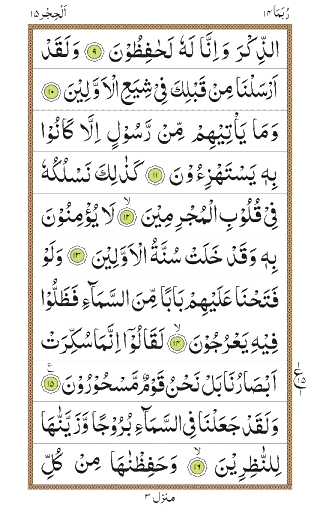 رُبَمَا ١٤ اَلْحِجْر ١٥
الذِّكْرَ وَاِنَّا لَهٗ لَحٰفِظُوْنَ ٩ وَلَقَدْ
اَرْسَلْنَا مِنْ قَبْلِكَ فِىْ شِيَعِ الْاَوَّلِيْنَ ١٠
وَمَا يَاْتِيْهِمْ مِّنْ رَّسُوْلٍ اِلَّا كَانُوْا
بِهٖ يَسْتَهْزِءُوْنَ ١١ كَذٰلِكَ نَسْلُكُهٗ
فِىْ قُلُوْبِ الْمُجْرِمِيْنَ ۙ ١٢ لَا يُؤْمِنُوْنَ
بِهٖ وَقَدْ خَلَتْ سُنَّةُ الْاَوَّلِيْنَ ١٣ وَلَوْ
فَتَحْنَا عَلَيْهِمْ بَابًا مِّنَ السَّمَآءِ فَظَلُّوْا
فِيْهِ يَعْرُجُوْنَ ۙ ١٤ لَقَالُوْٓا اِنَّمَا سُكِّرَتْ
اَبْصَارُنَا بَلْ نَحْنُ قَوْمٌ مَّسْحُوْرُوْنَ ١٥
وَلَقَدْ جَعَلْنَا فِى السَّمَآءِ بُرُوْجًا وَّزَيَّنّٰهَا
لِلنّٰظِرِيْنَ ۙ ١٦ وَحَفِظْنٰهَا مِنْ كُلِّ
منزل ٣